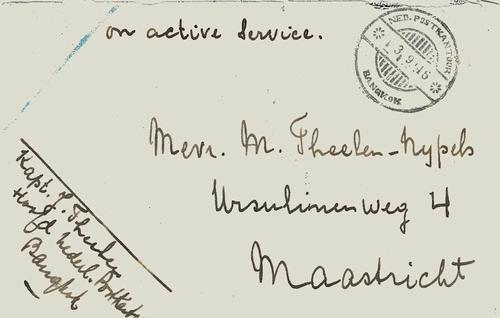 on active Service.
NED. POSTKANTOOR
BANGKOK
Mevr. M. Theelen-Nypels
Ursulinenweg 4
Maastricht
Kapt. J. Theelen
Hoofd Nederl. Postkant.
Bangkok